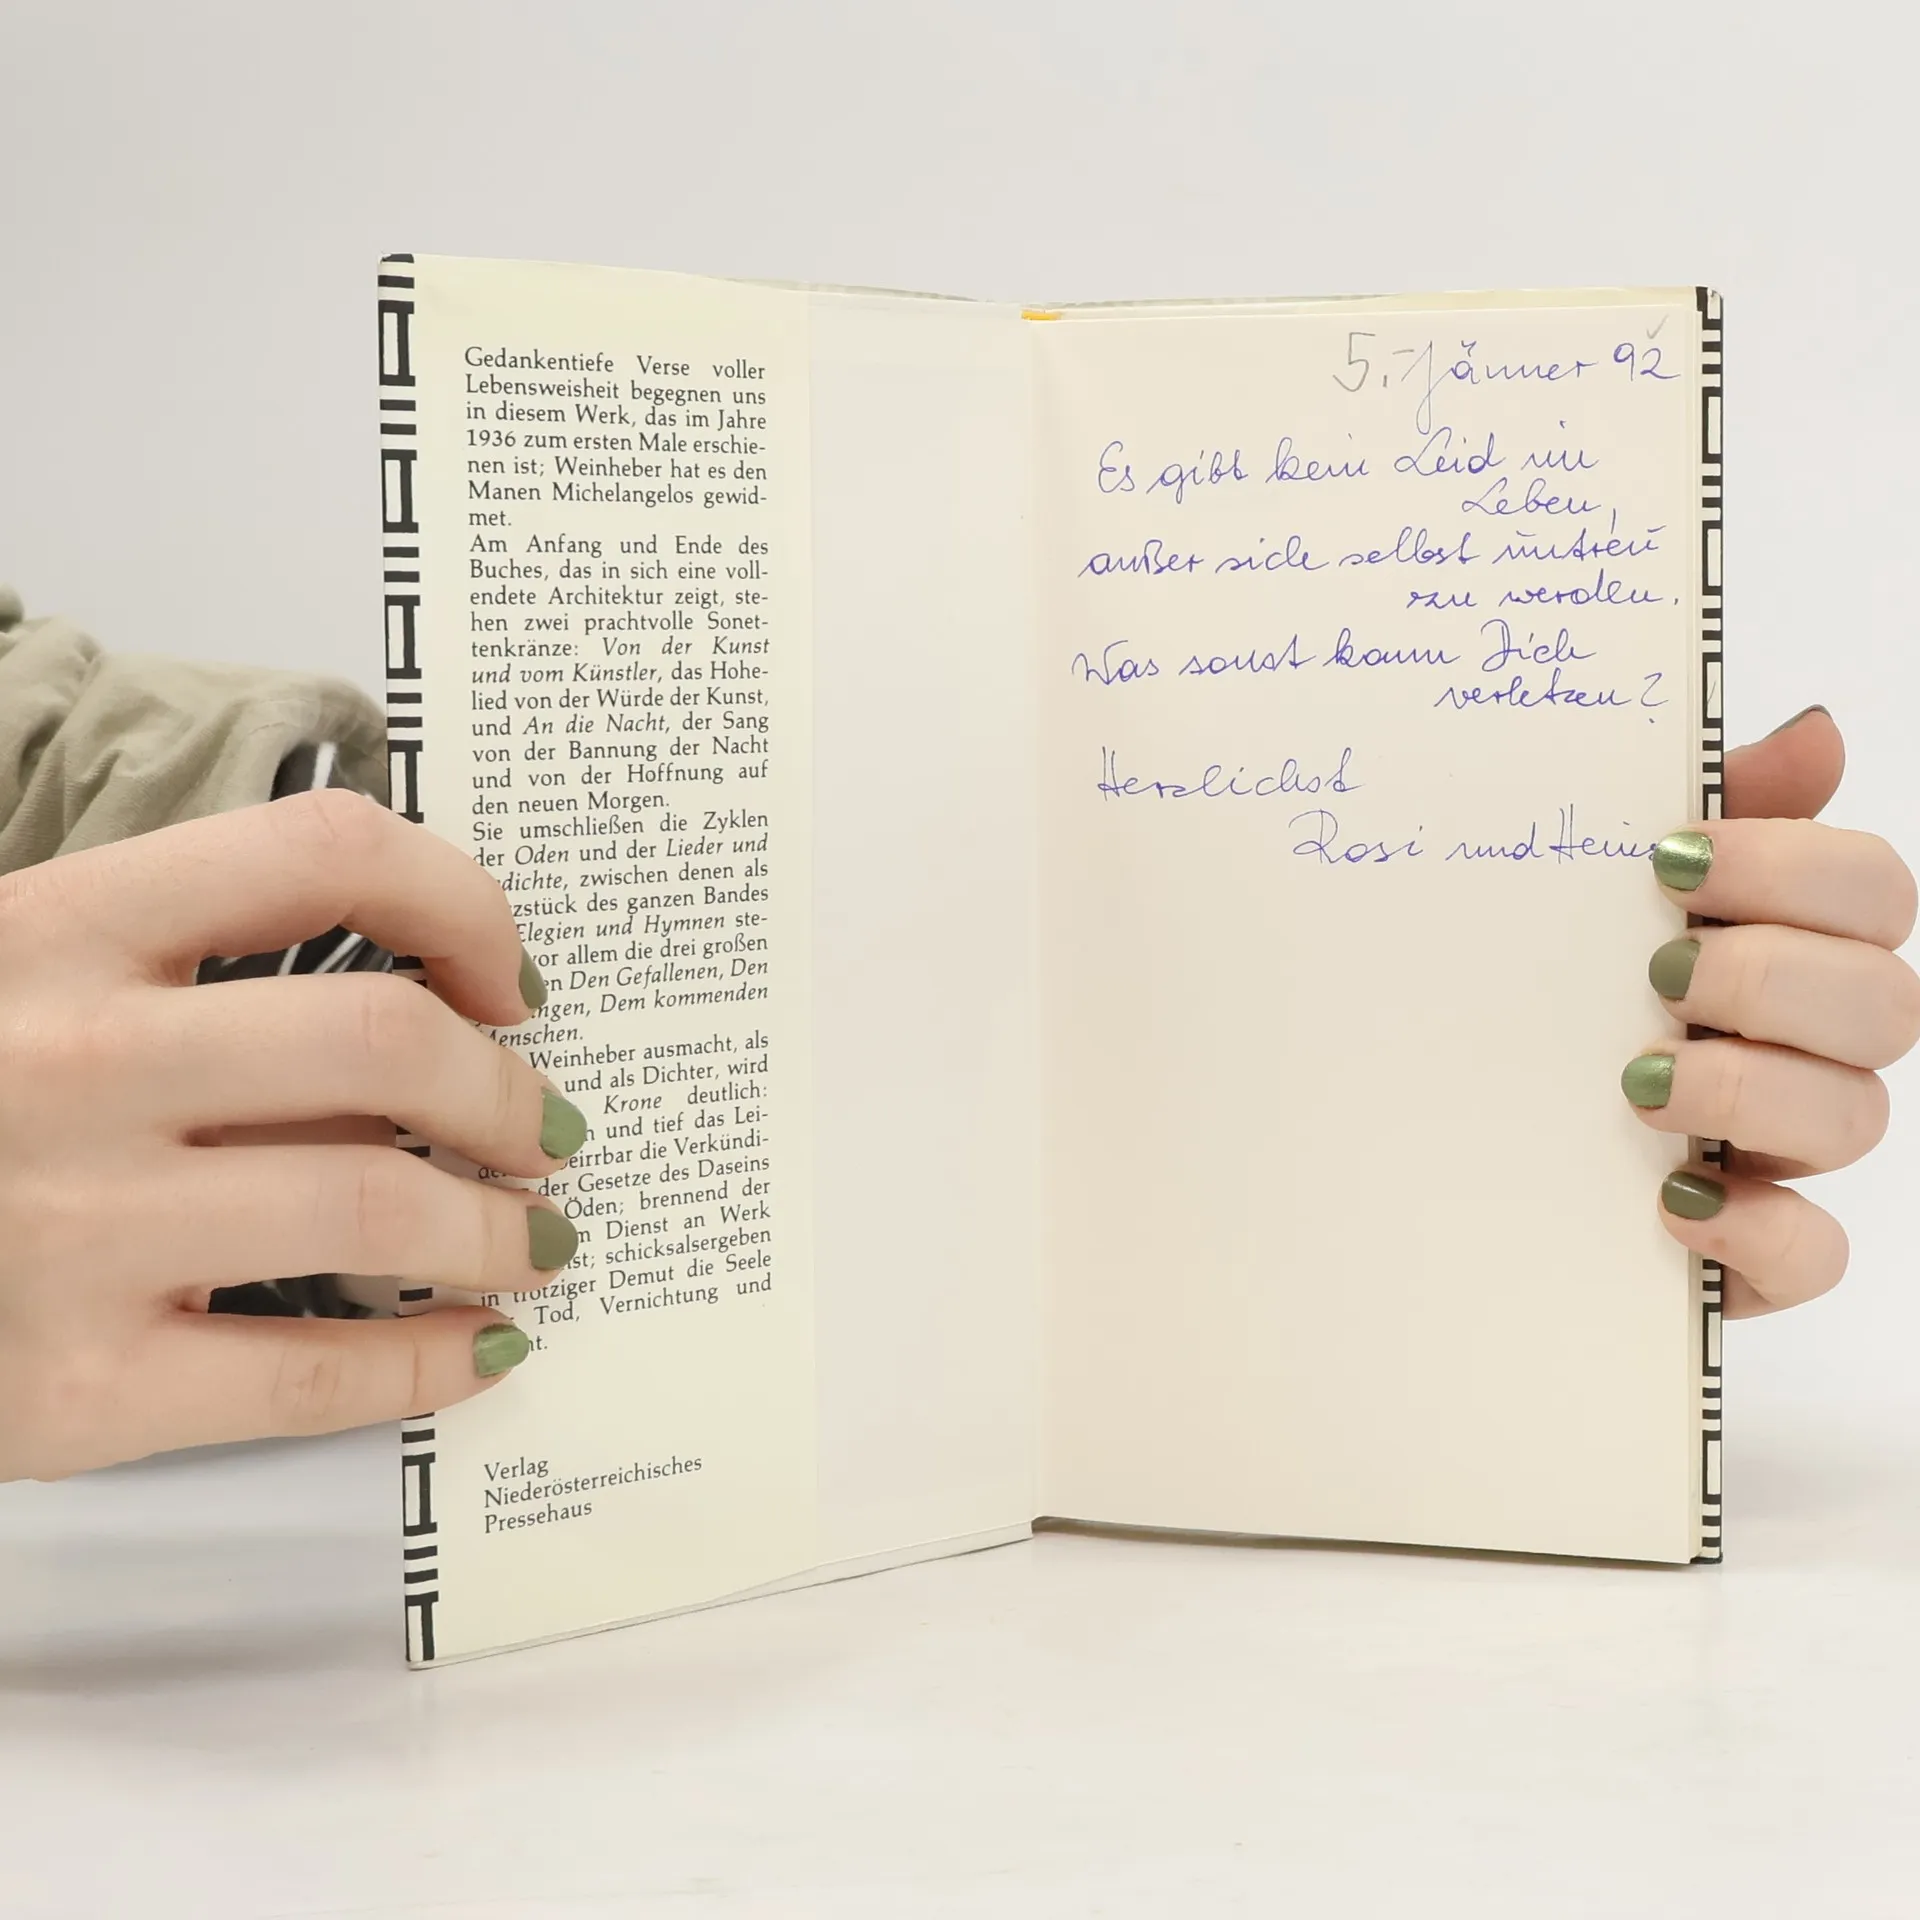 Gedankentiefe Verse voller
Lebensweisheit begegnen uns
in diesem Werk, das im Jahre
1936 zum ersten Male erschie-
nen ist; Weinheber hat es den
Manen Michelangelos gewid-
met.
Am Anfang und Ende des
Buches, das in sich eine voll-
endete Architektur zeigt, ste-
hen zwei prachtvolle Sonet-
tenkränze: Von der Kunst
und vom Künstler, das Hohe-
lied von der Würde der Kunst,
und An die Nacht, der Sang
von der Bannung der Nacht
und von der Hoffnung auf
den neuen Morgen.
Sie umschließen die Zyklen
der Oden und der Lieder und
dichte, zwischen denen als
zstück des ganzen Bandes
Elegien und Hymnen ste-
vor allem die drei großen
en Den Gefallenen, Den
ngen, Dem kommenden
Menschen.
Weinheber ausmacht, als
und als Dichter, wird
Krone deutlich:
und tief das Lei-
beirrbar die Verkündi-
der Gesetze des Daseins
Öden; brennend der
Dienst an Werk
st; schicksalsergeben
in trotziger Demut die Seele
Tod, Vernichtung und
nt.
Verlag
Niederösterreichisches
Pressehaus
5. Jänner 92
Es gibt kein Leid im
Leben,
außer sich selbst untreu
zu werden.
Was sonst kann Dich
verletzen?
Herzlichst
Rosi und Heinz